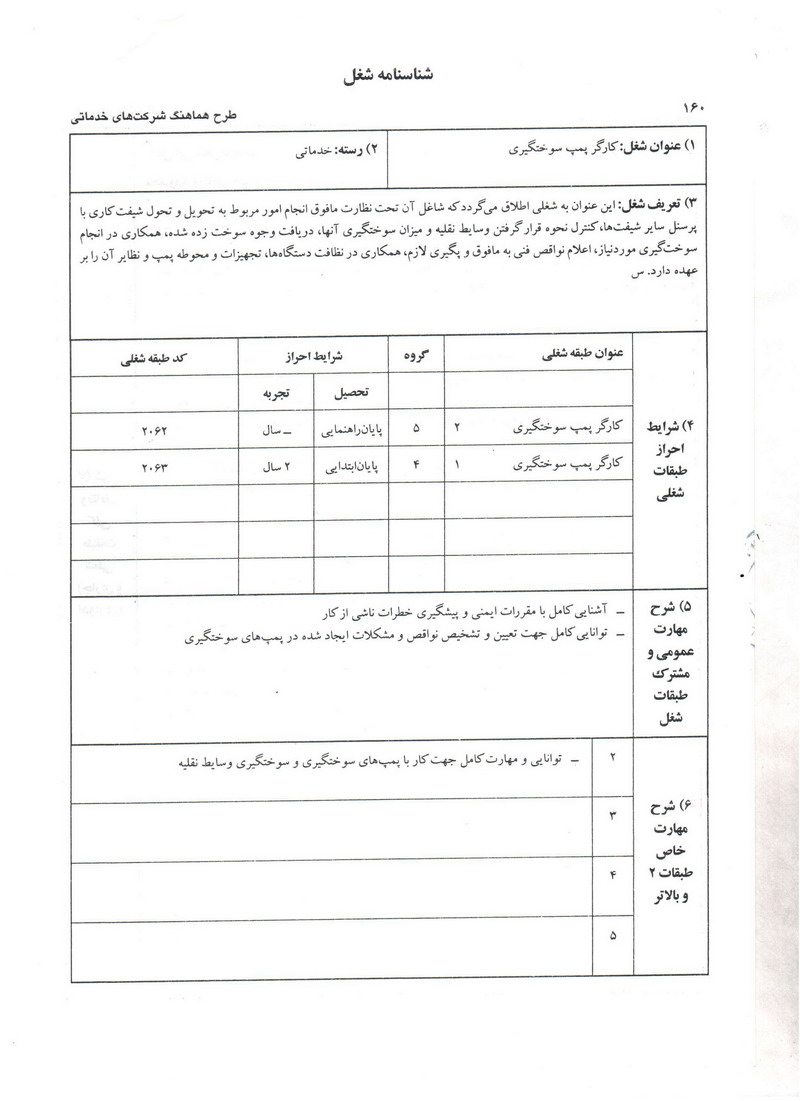 شناسنامه شغل
۱۶۰
طرح هماهنگ شرکت‌های خدماتی
۱) عنوان شغل: کارگر پمپ سوختگیری
۲) رسته: خدماتی
۳) تعریف شغل: این عنوان به شغلی اطلاق می‌گردد که شاغل آن تحت نظارت مافوق انجام امور مربوط به تحویل و تحول شیفت‌کاری با
پرسنل سایر شیفت‌ها، کنترل نحوه قرار گرفتن وسایط نقلیه و میزان سوختگیری آنها، دریافت وجوه سوخت زده شده، همکاری در انجام
سوخت‌گیری موردنیاز، اعلام نواقص فنی به مافوق و پگیری لازم، همکاری در نظافت دستگاه‌ها، تجهیزات و محوطه پمپ و نظایر آن را بر
عهده دارد. س
۴) شرایط
احراز
طبقات
شغلی
عنوان طبقه شغلی گروه شرایط احراز کد طبقه شغلی
تحصیل تجربه
کارگر پمپ سوختگیری ۲ ۵ پایان‌راهنمایی ــ سال ۲۰۶۲
کارگر پمپ سوختگیری ۱ ۴ پایان‌ابتدایی ۲ سال ۲۰۶۳
۵) شرح
مهارت
عمومی و
مشترک
طبقات
شغل
ــ آشنایی کامل با مقررات ایمنی و پیشگیری خطرات ناشی از کار
ــ توانایی کامل جهت تعیین و تشخیص نواقص و مشکلات ایجاد شده در پمپ‌های سوختگیری
۶) شرح
مهارت
خاص
طبقات ۲
و بالاتر
۲ ــ توانایی و مهارت کامل جهت کار با پمپ‌های سوختگیری و سوختگیری وسایط نقلیه
۳
۴
۵